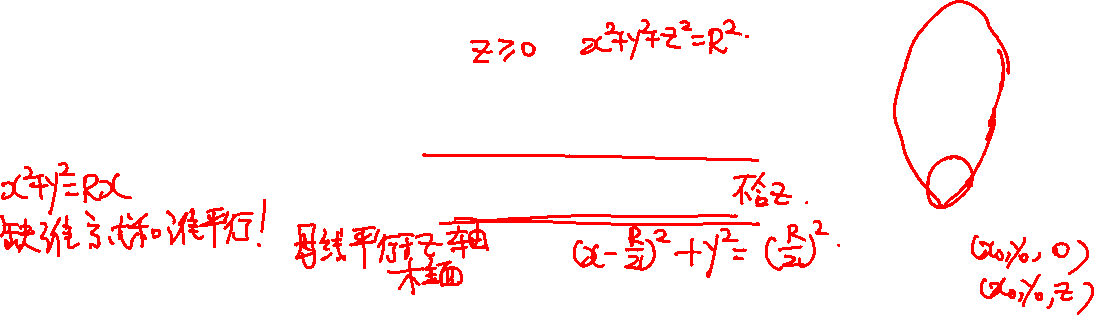 z≥0 x²+y²+z²=R².
x²+y²=Rx
不含z.
缺谁言式和谁平行!
母线平行于z轴
柱面
(x-R/2)²+y²=(R/2)².
(x₀,y₀,0)
(x₀,y₀,z)